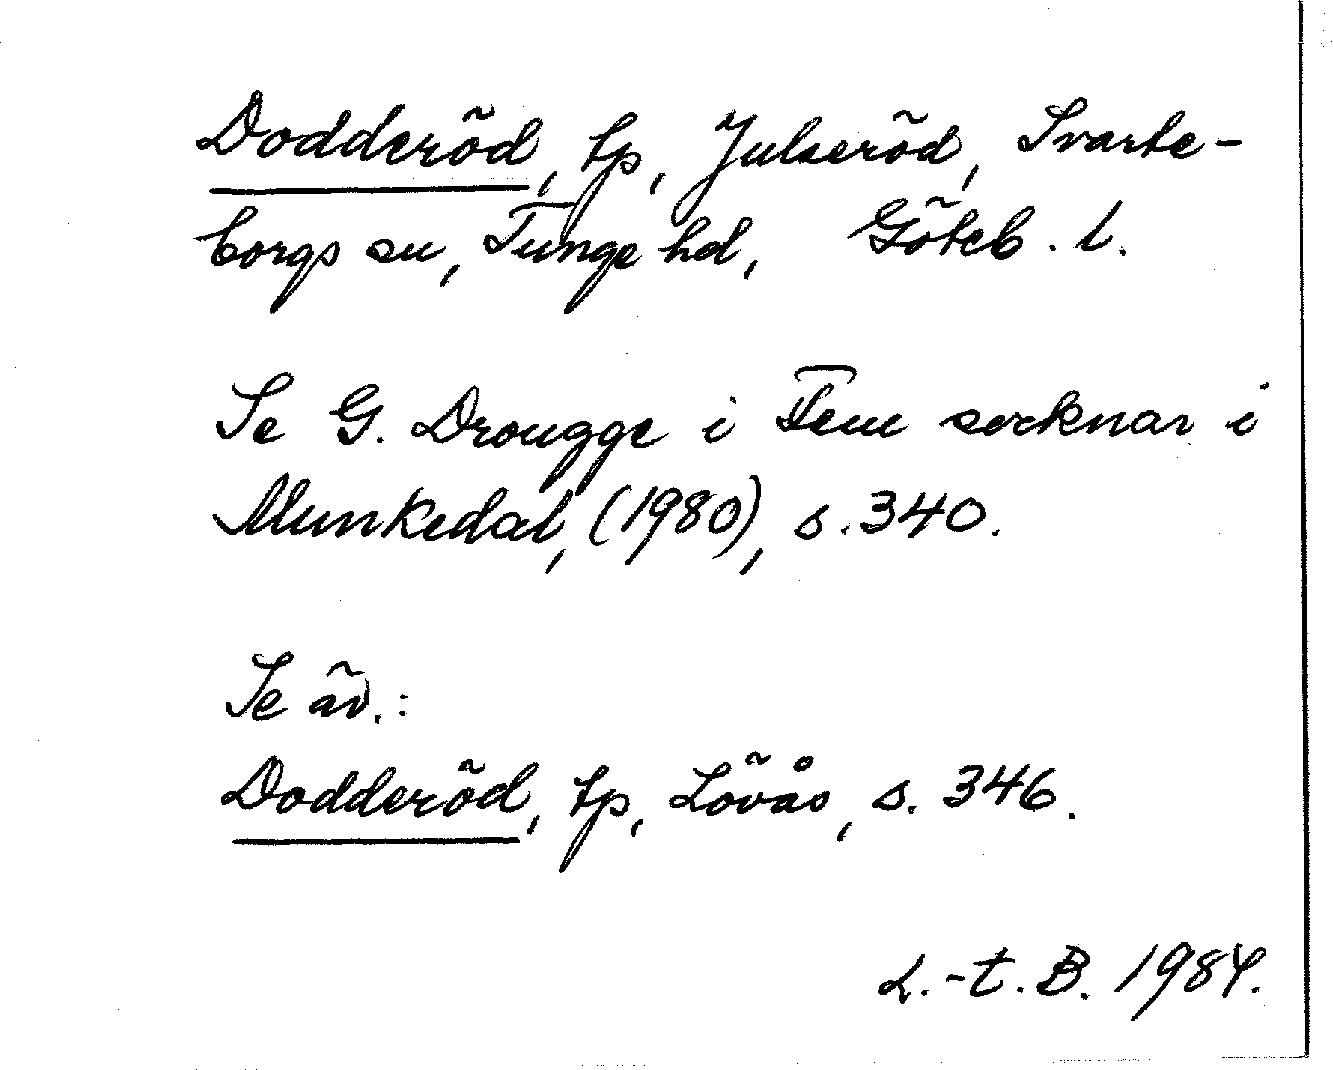 Dodderöd, tp, Julseröd, Svarte-
borgs sn, Tunge hd, Göteb. l.
Se G. Drougge i Fem socknar i
Munkedal, (1980), s. 340.
Se äv.:
Dodderöd, tp, Lövås, s. 346.
L.-t. B. 1984.